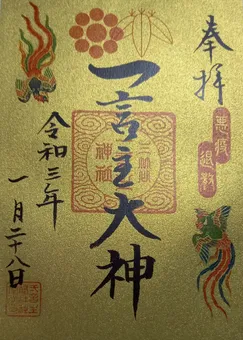 奉拝
悪疫
退散
一言主大神
三峰山
神社
令和三年
一月二十八日